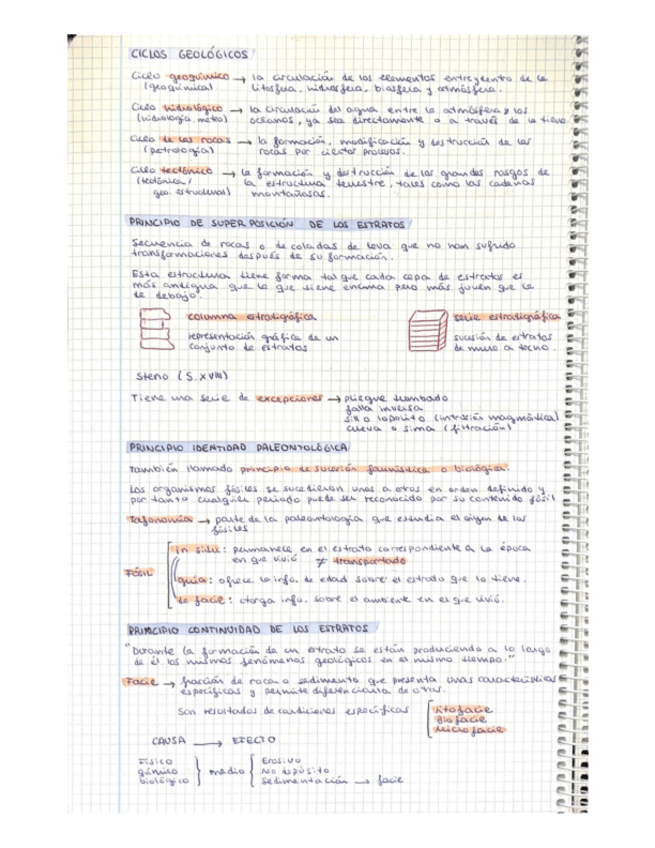 CICLOS GEOLÓGICOS
Ciclo geoquímico → la circulación de los elementos entre y dentro de la
(geoquímica) litosfera, hidrosfera, biosfera y atmósfera.
Ciclo hidrológico → la circulación del agua entre la atmósfera y los
(hidrología, meteo) océanos, ya sea directamente o a través de la tierra
Ciclo de las rocas → la formación, modificación y destrucción de las
(petrología) rocas por ciertos procesos.
Ciclo tectónico → la formación y destrucción de los grandes rasgos de
(tectónica, la estructura terrestre, tales como las cadenas
geo. estructural) montañosas.
PRINCIPIO DE SUPERPOSICIÓN DE LOS ESTRATOS
Secuencia de rocas o de coladas de lava que no han sufrido
transformaciones después de su formación.
Esta estructura tiene forma tal que cada capa de estratos es
más antigua que la que tiene encima pero más joven que la
de debajo.
columna estratigráfica serie estratigráfica
representación gráfica de un sucesión de estratos
conjunto de estratos de muro a techo.
Steno (S. XVIII)
Tiene una serie de excepciones → pliegue tumbado
falla inversa
sill o lopolito (intrusión magmática)
cueva o sima (filtración)
PRINCIPIO IDENTIDAD PALEONTOLÓGICA
También llamado principio de sucesión faunística o biológica.
Los organismos fósiles se sucedieron unos a otros en orden definido y
por tanto cualquier periodo puede ser reconocido por su contenido fósil
Tafonomía → parte de la paleontología que estudia el origen de los
fósiles
in situ: permanece en el estrato correspondiente a la época
en que vivió ≠ transportado
FÓSIL
guía: ofrece la info. de edad sobre el estrato que lo tiene.
de facie: otorga info. sobre el ambiente en el que vivió.
PRINCIPIO CONTINUIDAD DE LOS ESTRATOS
"Durante la formación de un estrato se están produciendo a lo largo
de él los mismos fenómenos geológicos en el mismo tiempo."
Facie → fracción de roca o sedimento que presenta unas características
específicas y permite diferenciarla de otras.
Son resultados de condiciones específicas litofacie
Biofacie
Microfacie
CAUSA → EFECTO
Físico Erosivo
químico medio No depósito
biológico Sedimentación → facie